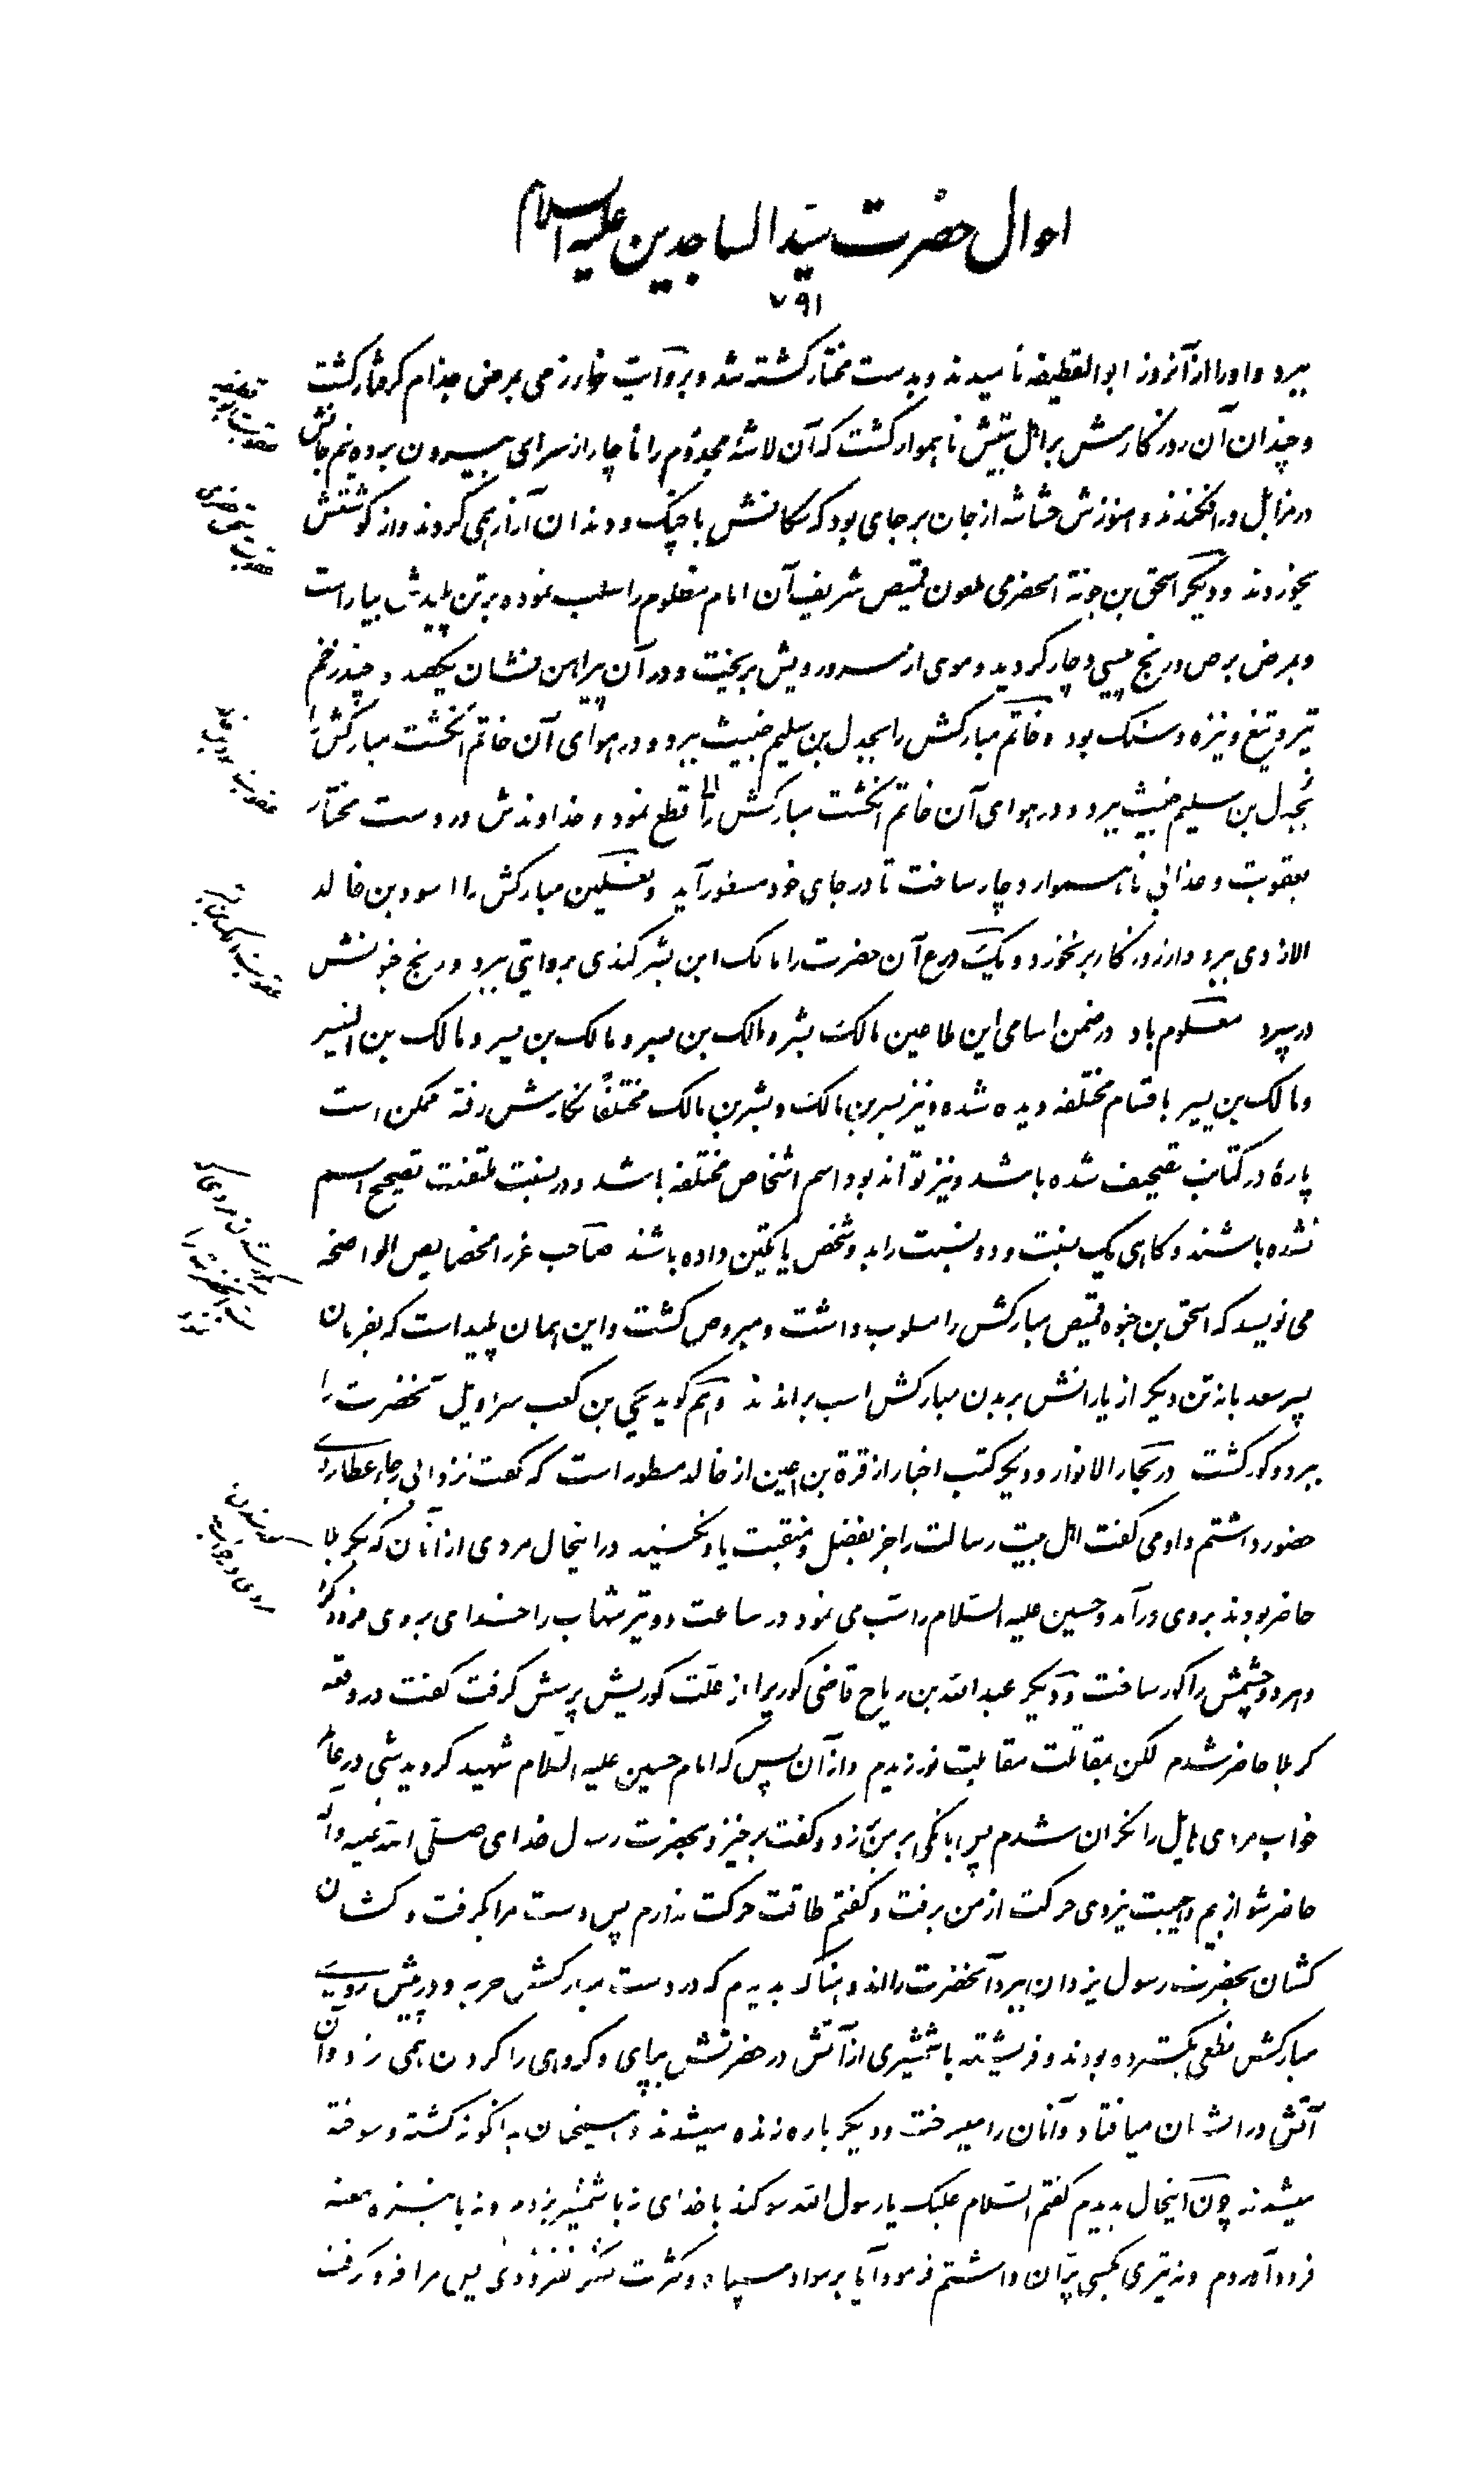 احوال حضرت سید الساجدین علیه السلام
۷۹۱
ببرد و او را از آنروز ابوالقطیفه نامیدند و بدست مختار کشته شد و بروایت خوارزمی بمرض جذام گرفتار گشت
و چندان آن روزگارش بر اهل بیتش ناهموار گشت که آن لاشهٔ مجذوم را ناچار از سرای بیرون برده نیم جانش
در مزابل درافکندند و هنوزش حشاشه از جان بر جای بود که سگانش با چنگ و دندان آزار همی کردند و از گوشتش
بخوردند و دیگر اسحق بن حوتة الحضرمی ملعون قمیص شریف آن امام مظلوم را سلب نموده بر تن پلیدش بیاراست
و بمرض برص و رنج پیسی دچار گردید و موی از سر و رویش بریخت و در آن پیراهن نشان یکصد و چند زخم
تیر و تیغ و نیزه و سنگ بود و خاتم مبارکش را بجدل بن سلیم خبیث ببرد و در هوای آن خاتم انگشت مبارکش را
بجدل بن سلیم خبیث ببرد و در هوای آن خاتم انگشت مبارکش را قطع نمود و خداوندش در دست مختار
بعقوبت و عذابی ناهموار دچار ساخت تا در جای خود مسفور آید و نعلین مبارکش را اسود بن خالد
الازدی ببرد و از روزگار برنخورد و یک درع آن حضرت را مالک ابن بشر کندی بروایتی ببرد و رنج خونش
در سپرد معلوم باد در ضمن اسامی این ملاعین مالک بشر و مالک بن بسر و مالک بن یسر و مالک بن النسیر
و مالک بن یسیر باقسام مختلفه دیده شده و نیز بسر بن مالک و بشر بن مالک مختلفاً نگارش رفته ممکن است
پارهٔ در کتابت تصحیف شده باشد و نیز تواند بود اسم اشخاص مختلفه باشد و در نسبت ملتفت تصحیح اسم
نشده باشند و گاهی یک نسبت و دو نسبت را بدو شخص یا یک تن داده باشند صاحب غرر الخصایص الواضحه
می نویسد که اسحق بن حیوه قمیص مبارکش را مسلوب داشت و مبروص گشت و این همان پلید است که بفرمان
پسر سعد با نه تن دیگر از یارانش بر بدن مبارکش اسب براندند و هم گوید یحیی بن کعب سراویل آنحضرت را
ببرد و کور گشت در بحار الانوار و دیگر کتب اخبار از قرة بن اعین از خالد مسطور است که گفت نزد ابی رجاء عطاردی
حضور داشتم و او می گفت اهل بیت رسالت را جز بفضل و منقبت یاد نکنید در اینحال مردی از آنان که بکربلا
حاضر بودند بروی درآمد و حسین علیه السلام را سب می نمود در ساعت دو تیر شهاب را خدای بروی فرود کرد
و هر دو چشمش را کور ساخت و دیگر عبدالله بن ریاح قاضی کوری را از علت کوریش پرسش گرفت گفت در وقعه
کربلا حاضر شدم لکن بمقاتلت مقابلت نورزیدم و از آن پس که امام حسین علیه السلام شهید گردید شبی در عالم
خواب مردی هایل را نگران شدم پس بانگی بر من زد و گفت برخیز و بحضرت رسول خدای صلی الله علیه و آله
حاضر شو از بیم و هیبت نیروی حرکت از من برفت و گفتم طاقت حرکت ندارم پس دست مرا بگرفت و کشان
کشان بحضرت رسول یزدان ببرد آنحضرت را اندوهناک بدیدم که در دست مبارکش حربه و در پیش روی
مبارکش نطعی بگسترده بودند و فرشته با شمشیری از آتش در حضرتش بپای و گروهی را گردن همی زد و آن
آتش در ایشان میافتاد و آنان را میسوخت و دیگر باره زنده میشدند و همچنان بدانگونه کشته و سوخته
میشدند چون اینحال بدیدم گفتم السلام علیک یا رسول الله سوگند با خدای نه با شمشیر بزدم و نه با نیزه طعنه
فرود آوردم و نه تیری بکسی پران داشتم فرمود آیا بر سواد سپاه و کثرت لشکر نیفزودی پس مرا فرو گرفت